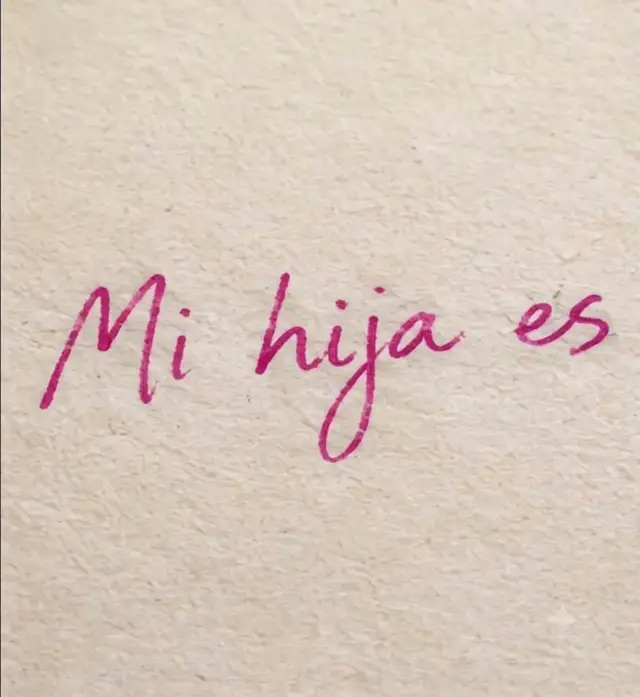 Mi hija es